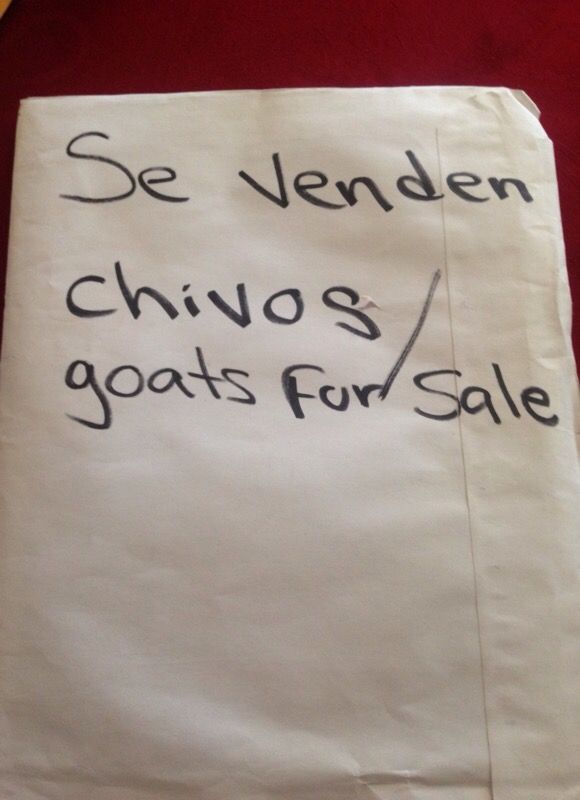 Se venden
chivos /
goats For Sale